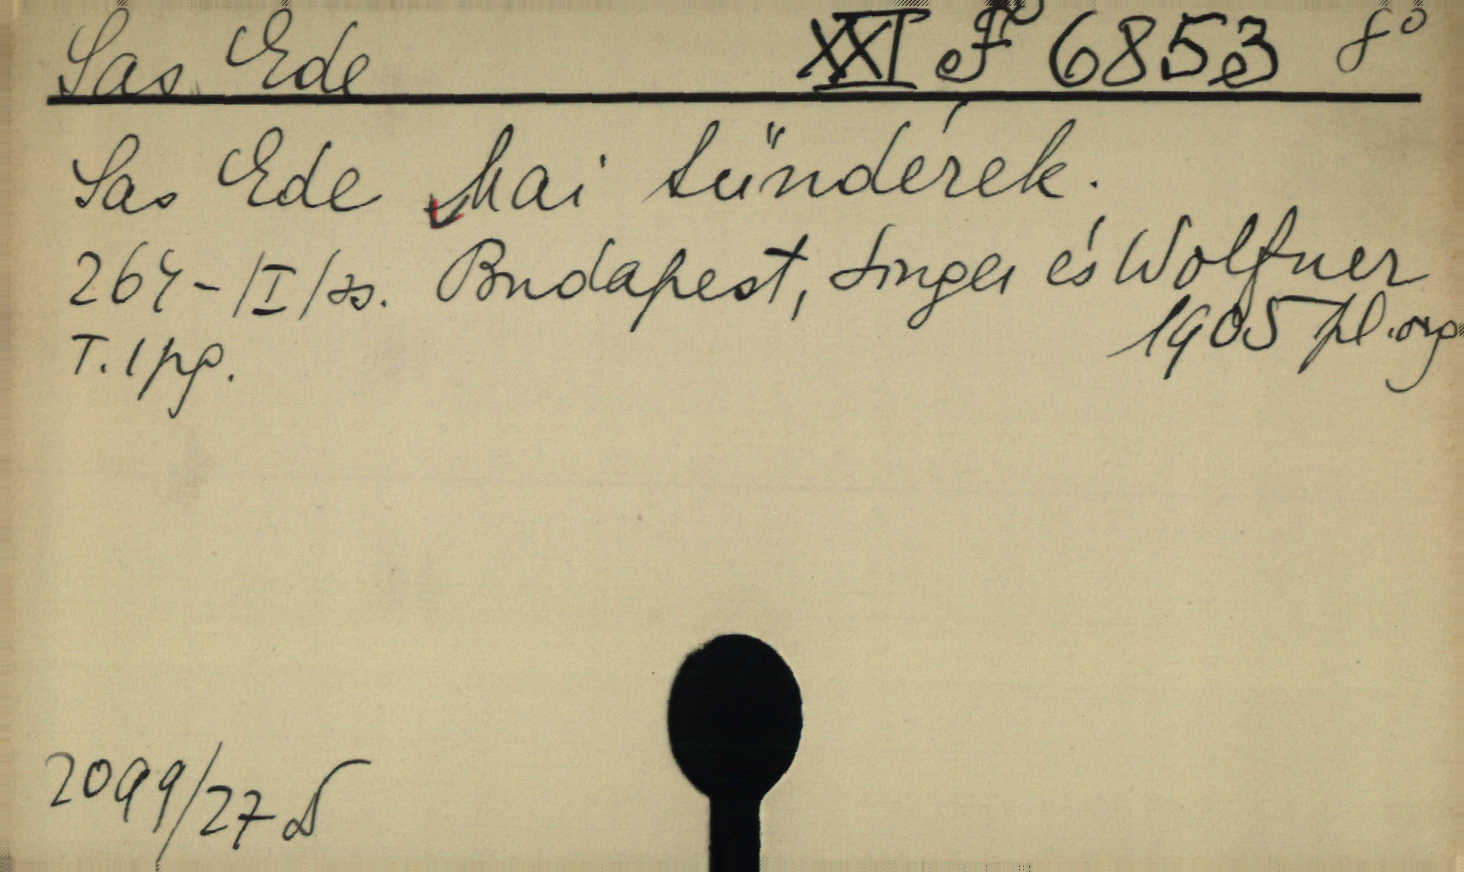 Sas Ede XXI F 6853 8°
Sas Ede Mai tündérek.
264 - /I/ Budapest, Singer és Wolfner
T. 1 pg. 1905
2099/27